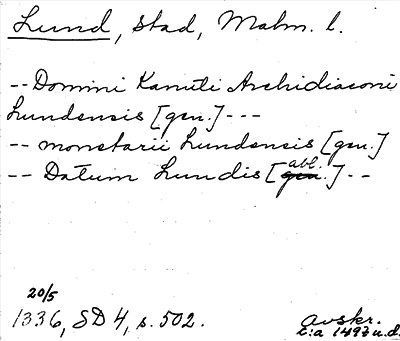 Lund, stad, Malm. l.
-- Domini Kanuti Archidiaconi
Lundensis [gen.] ---
-- monetarii Lundensis [gen.]
-- Datum Lundis [gen abl.] --
20/5
1336, SD 4, s. 502.
avskr.
l:a 1493 n.d.